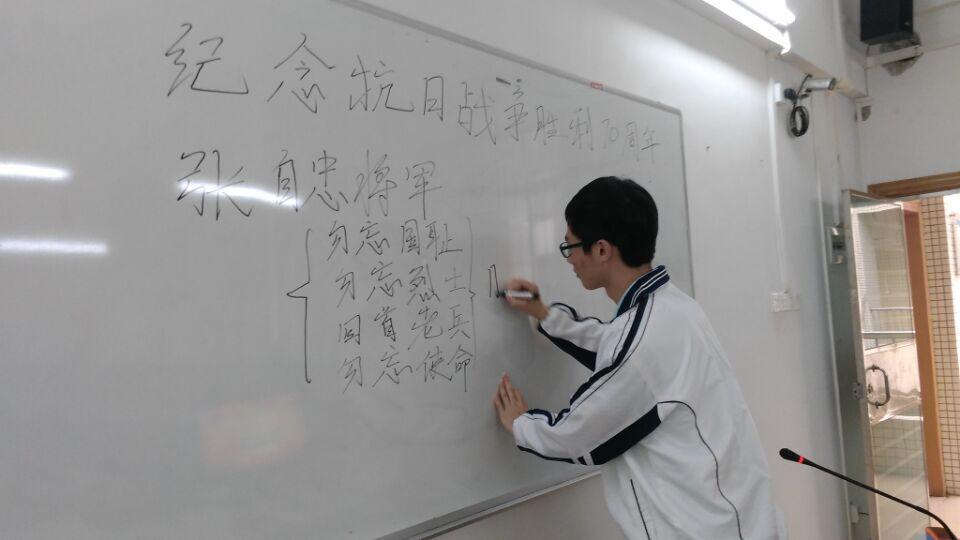 纪念抗日战争胜利70周年
张自忠将军
勿忘国耻
勿忘烈士
回首老兵
勿忘使命